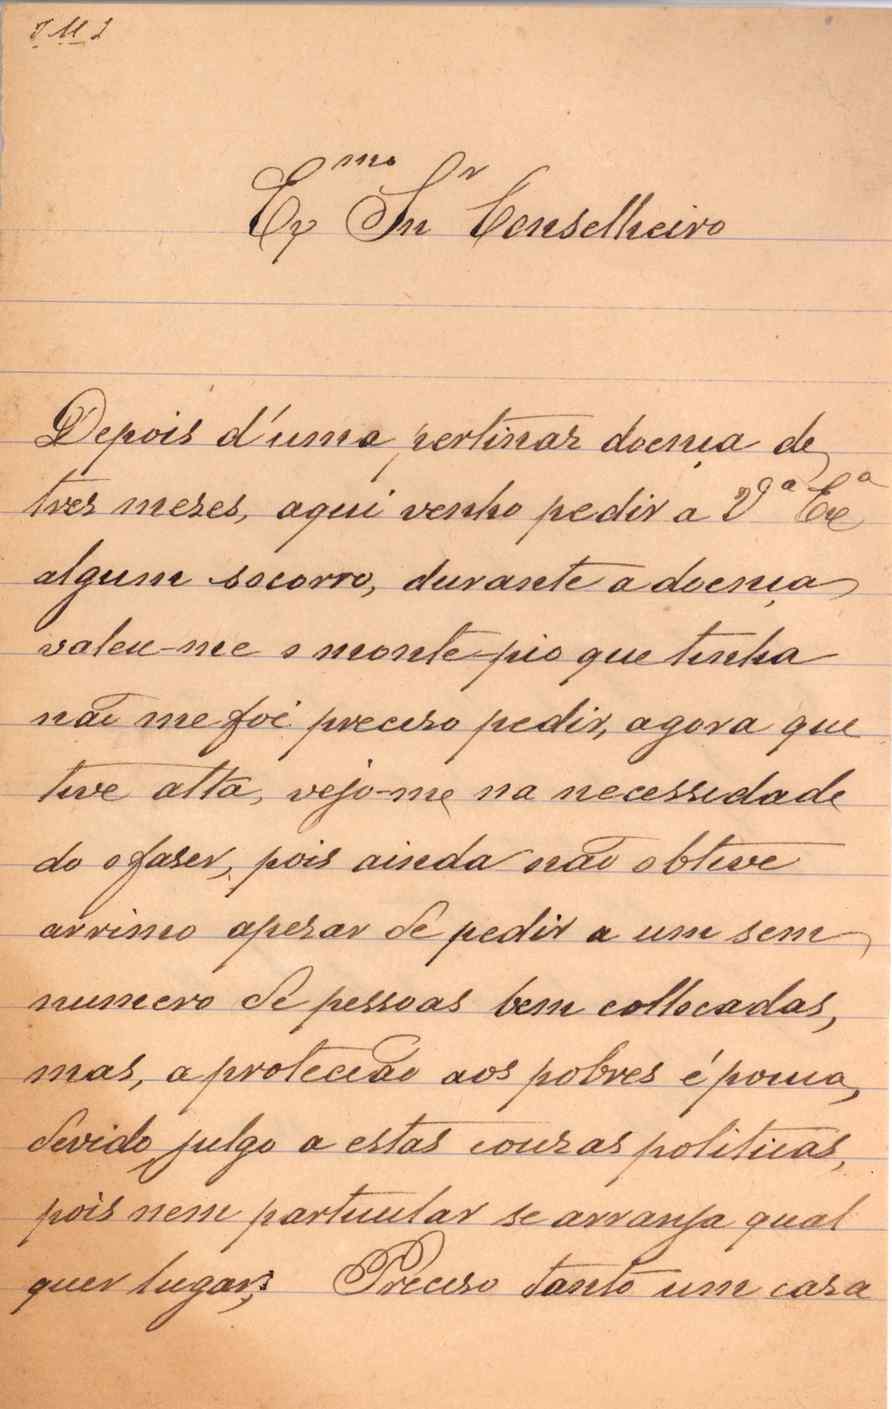 J. M. 2
Ex.mo Snr Conselheiro
Depois d'uma pertinaz doença de
tres mezes, aqui venho pedir a V.ª Exª
algum socorro, durante a doença
valeu-me o monte-pio que tinha
não me foi preciso pedir, agora que
tive alta, vejo-me na necessidade
do o faser, pois ainda não obtive
arrimo apezar de pedir a um sem
numero de pessoas bem collocadas,
mas, a protecção aos pobres é pouca,
devido julgo a estas couzas politicas,
pois nem particular se arranja qual
quer lugar; Preciso tanto um casa